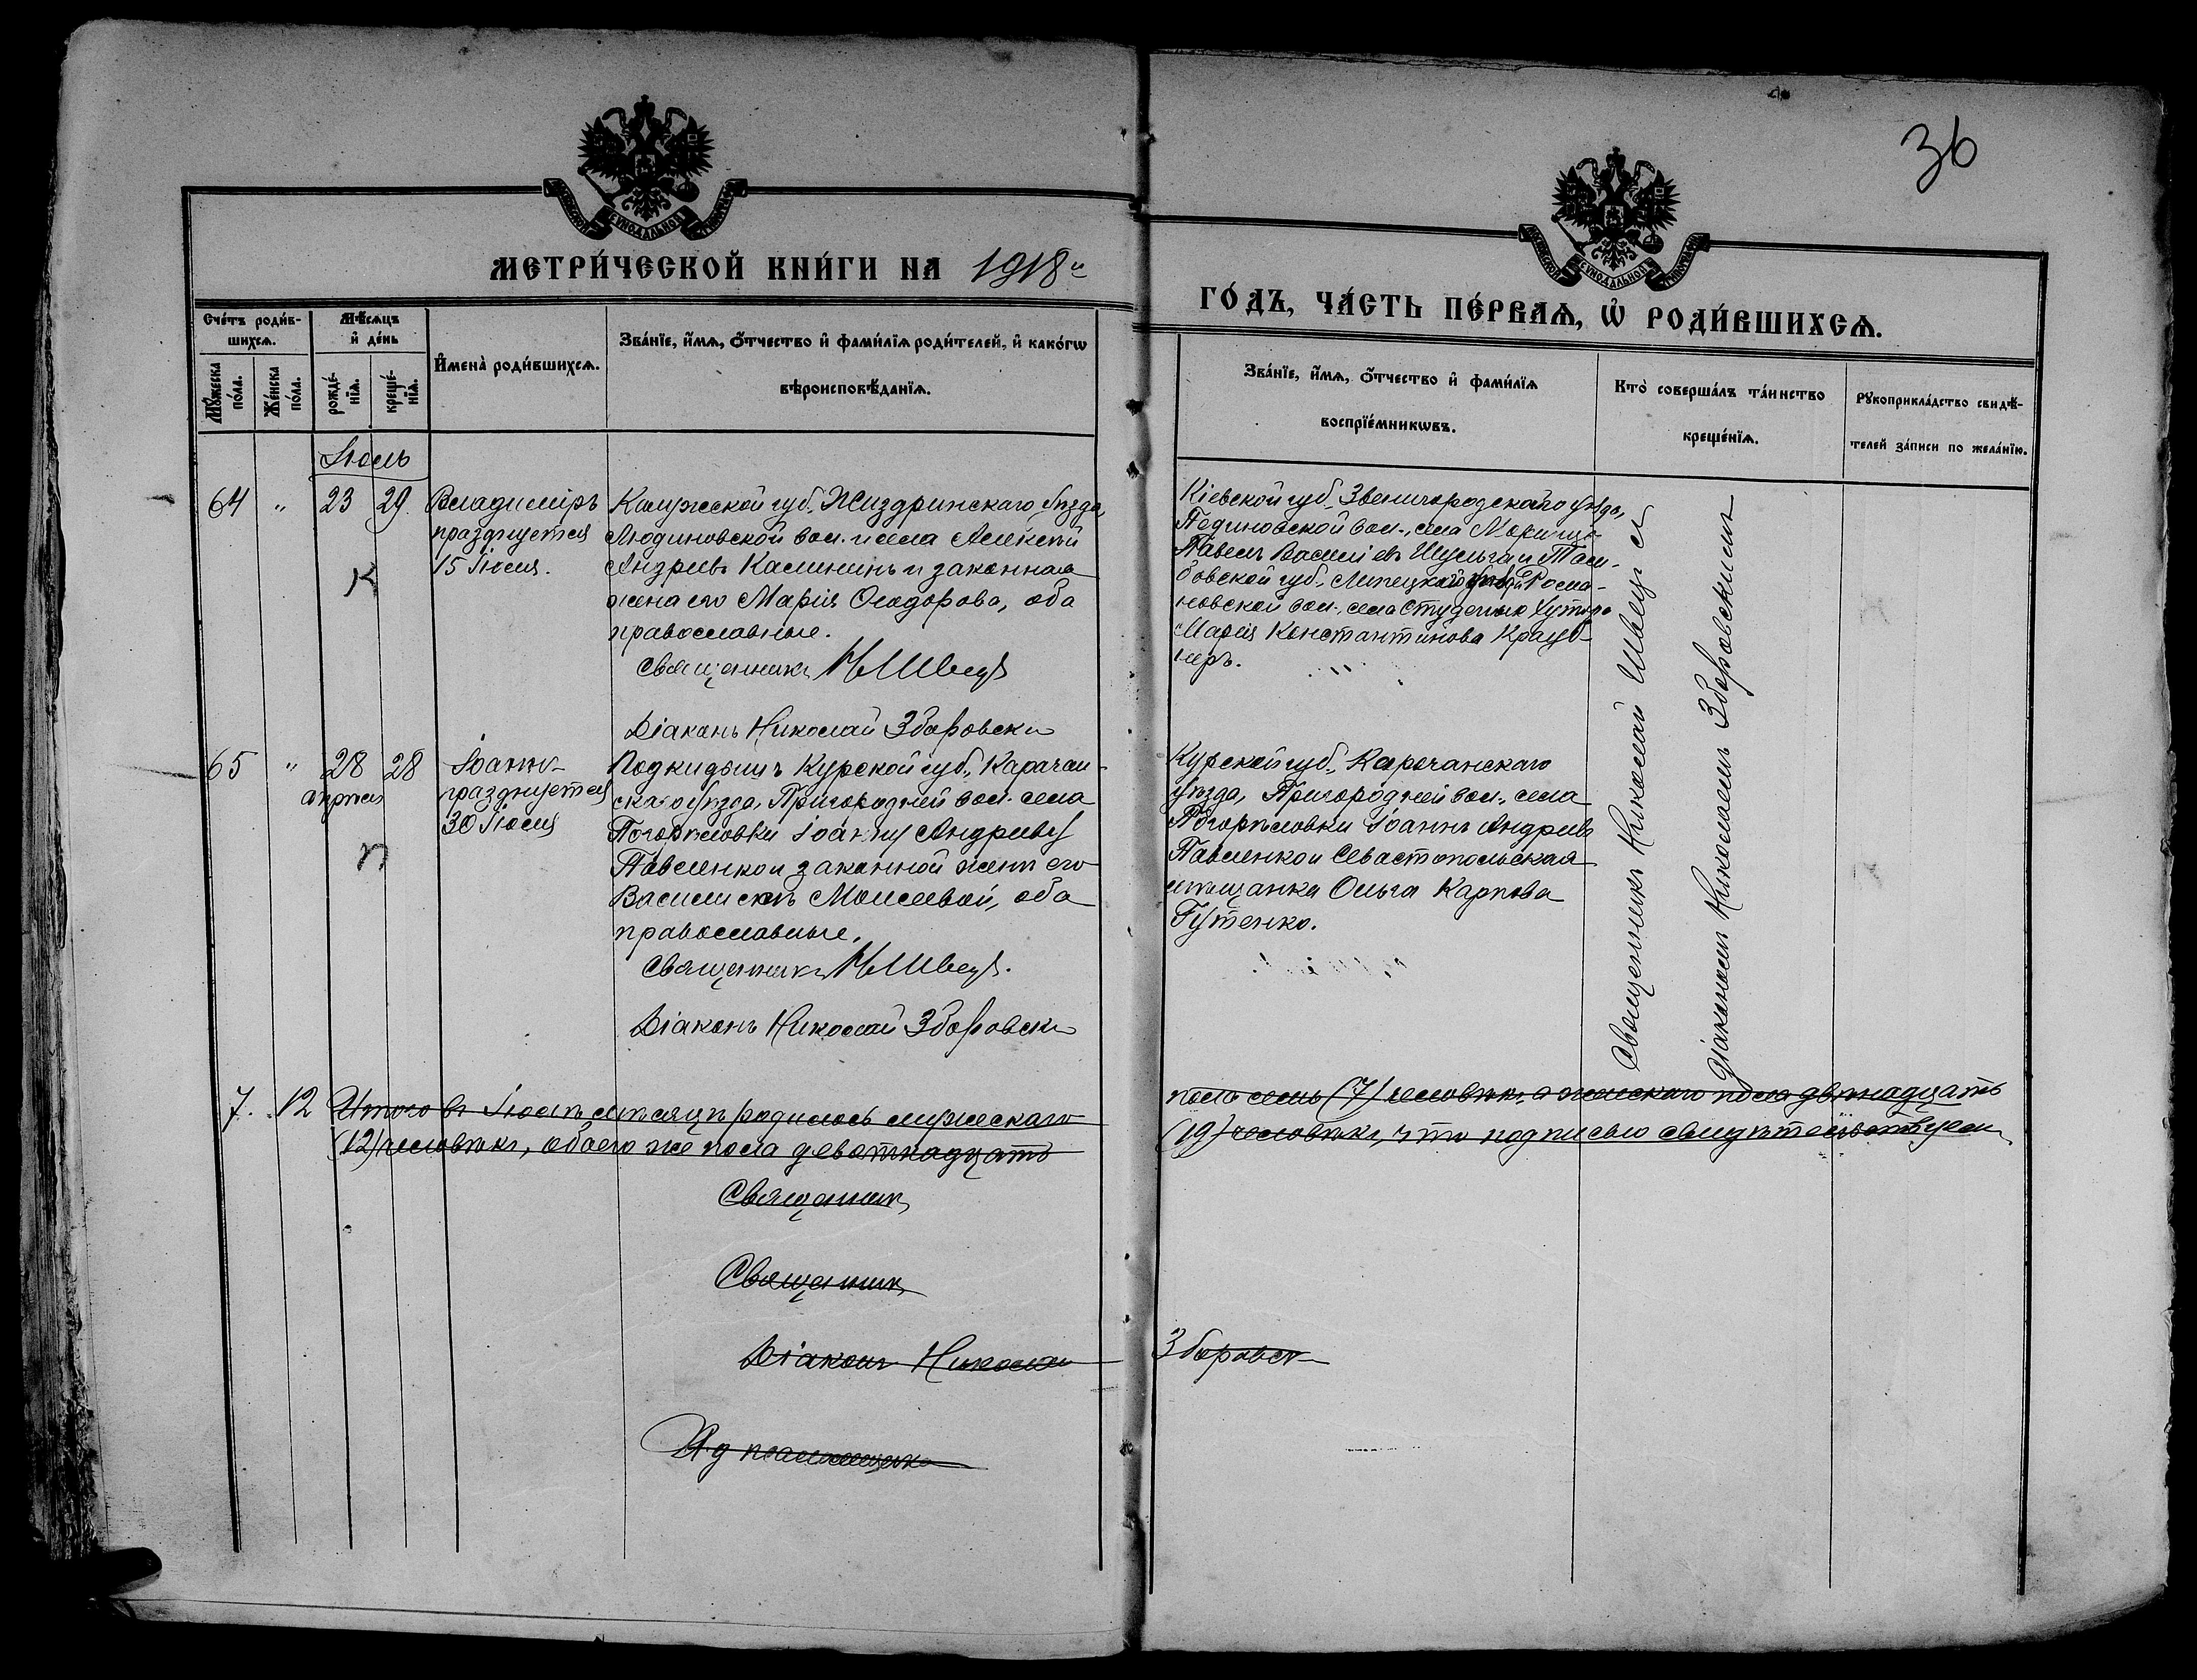 36
МЕТРИ́ЧЕСКОЙ КНИ́ГИ НА 1918й
ГО́ДЪ, ЧА́СТЬ ПЕ́РВАѦ, Ѡ҆ РОДИ́ВШИХСѦ.
Сче́тъ роди́в-
шихсѧ.
Мѣ́сѧцъ
и҆ де́нь
Му́жеска по́ла.
Же́нска по́ла.
рожде́-
нїѧ.
креще́-
нїѧ.
И҆мена̀ роди́вшихсѧ.
Зва́нїе, и҆́мѧ, ѻ҆́тчество и҆ фами́лїѧ роди́телей, и҆ како́гѡ
вѣроисповѣ́данїѧ.
Зва́нїе, и҆́мѧ, ѻ҆́тчество и҆ фами́лїѧ
воспрїе́мникѡвъ.
Кто̀ соверша́лъ та́инство
креще́нїѧ.
Рꙋкоприкла́дство свидѣ́-
телей за́писи по жела́нїю.
Іюль
64 " 23 29.
Владиміръ
празднуется
15 Іюля.
К
Калужской губ., Жиздринскаго уѣзда,
Людиновской вол. и села Алексѣй
Андреевъ Калининъ и законная
жена его Марія Ѳеодорова, оба
православные.
Священникъ Н. Швецъ
Діаконъ Николай Зборовски
Кіевской губ., Звенигородскаго уѣзда,
Пединовской вол., села Моринцы
Павелъ Васильевъ Шульга и Там-
бовской губ., Липецкаго уѣзда, Рома-
новской вол., села Студеные Хутора
Марія Константинова
65 " 28 28
апрѣля
Іоаннъ
празднуется
30 Іюля
п
Подкидышъ Курской губ., Карачан-
скаго уѣзда, Пригородней вол. села
Погорѣловки Іоанну Андрееву
Павленко и законной женѣ его
Василискѣ Моисеевой, оба
православные.
Священникъ Н. Швецъ.
Діаконъ Николай Зборовски
Курской губ., Карочанскаго
уѣзда, Пригородней вол., села
Погорѣловки Іоаннъ Андреевъ
Павленко и Севастопольская
мѣщанка Ольга Карпова
Гутенко.
Священникъ Николай Швецъ съ
Діакономъ Николаемъ Зборовскимъ
7. 12 Итого въ Іюлѣ мѣсяцѣ родилось мужескаго
пола семь (7) человѣкъ, а женскаго пола двѣнадцать
(12) человѣкъ, обоего же пола девятнадцать
(19) человѣкъ, что подписью свидѣтельствуемъ
Священникъ
Священникъ
Діаконъ Николай Зборовск
И. д. псаломщика